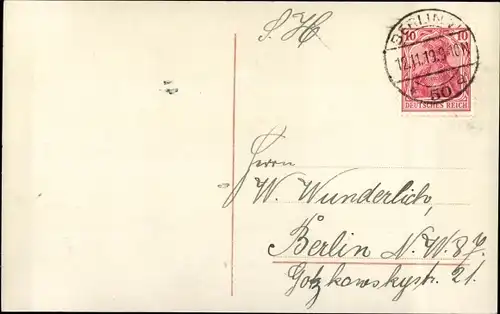 S. H.
10 10
DEUTSCHES REICH
BERLIN
12.11.19.9-10N
50 a
Herrn
W. Wunderlich,
Berlin N.W. 87.
Gotzkowskystr. 21.